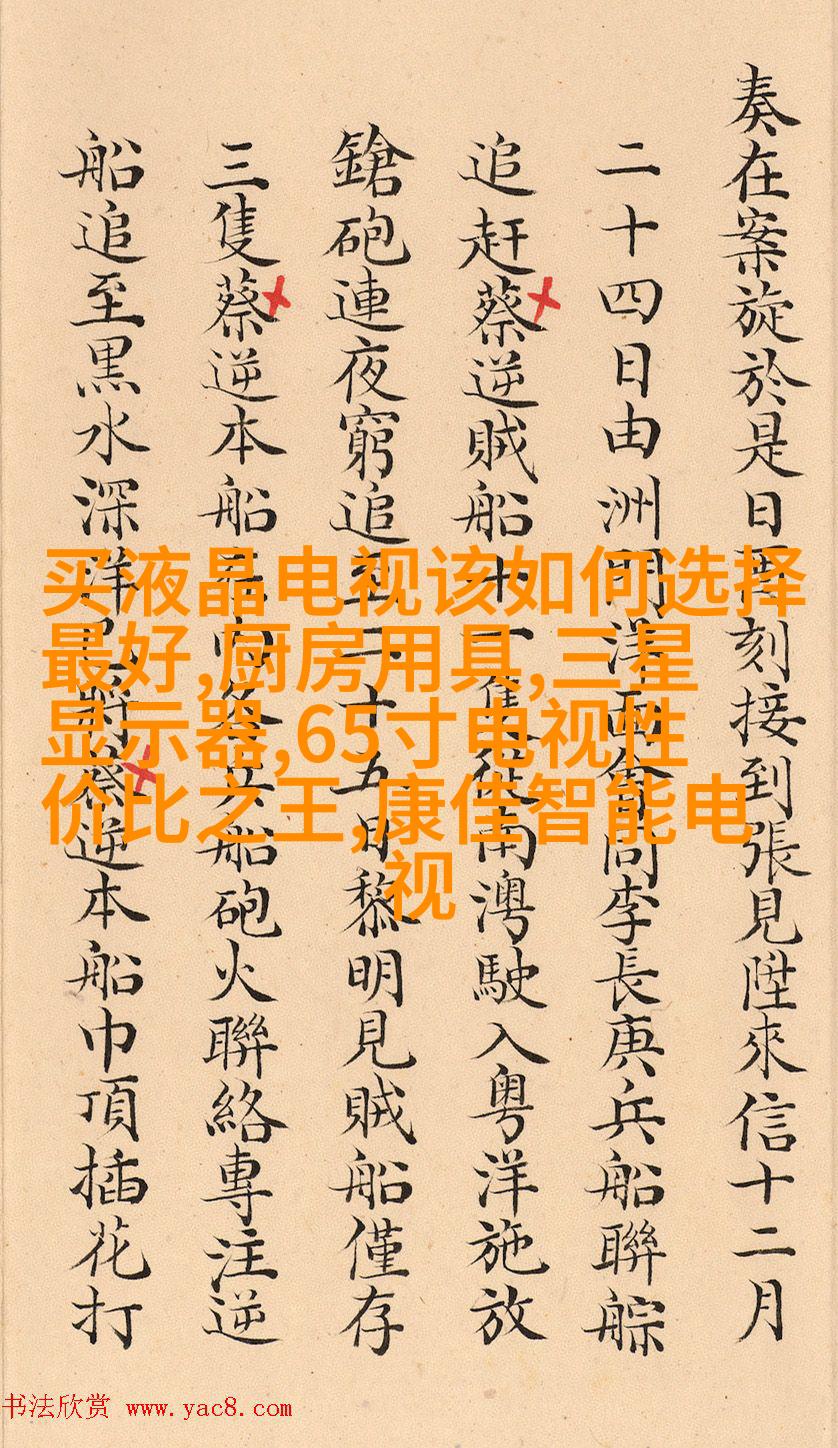 奏在案旋於是日刻接到張見陞來信十二月
二十四日由洲門洋面會同李長庚兵船聯䑸
追赶蔡逆賊船十一隻從南澳駛入粤洋施放
鎗砲連夜窮追至二十五日黎明見賊船僅存
三隻蔡逆本船在内各兵船砲火聯絡專注逆
船追至黒水深洋已將蔡逆本船巾頂插花打
买液晶电视该如何选择
最好,厨房用具,三星
显示器,65寸电视性
价比之王,康佳智能电
视
书法欣赏 www.yac8.com